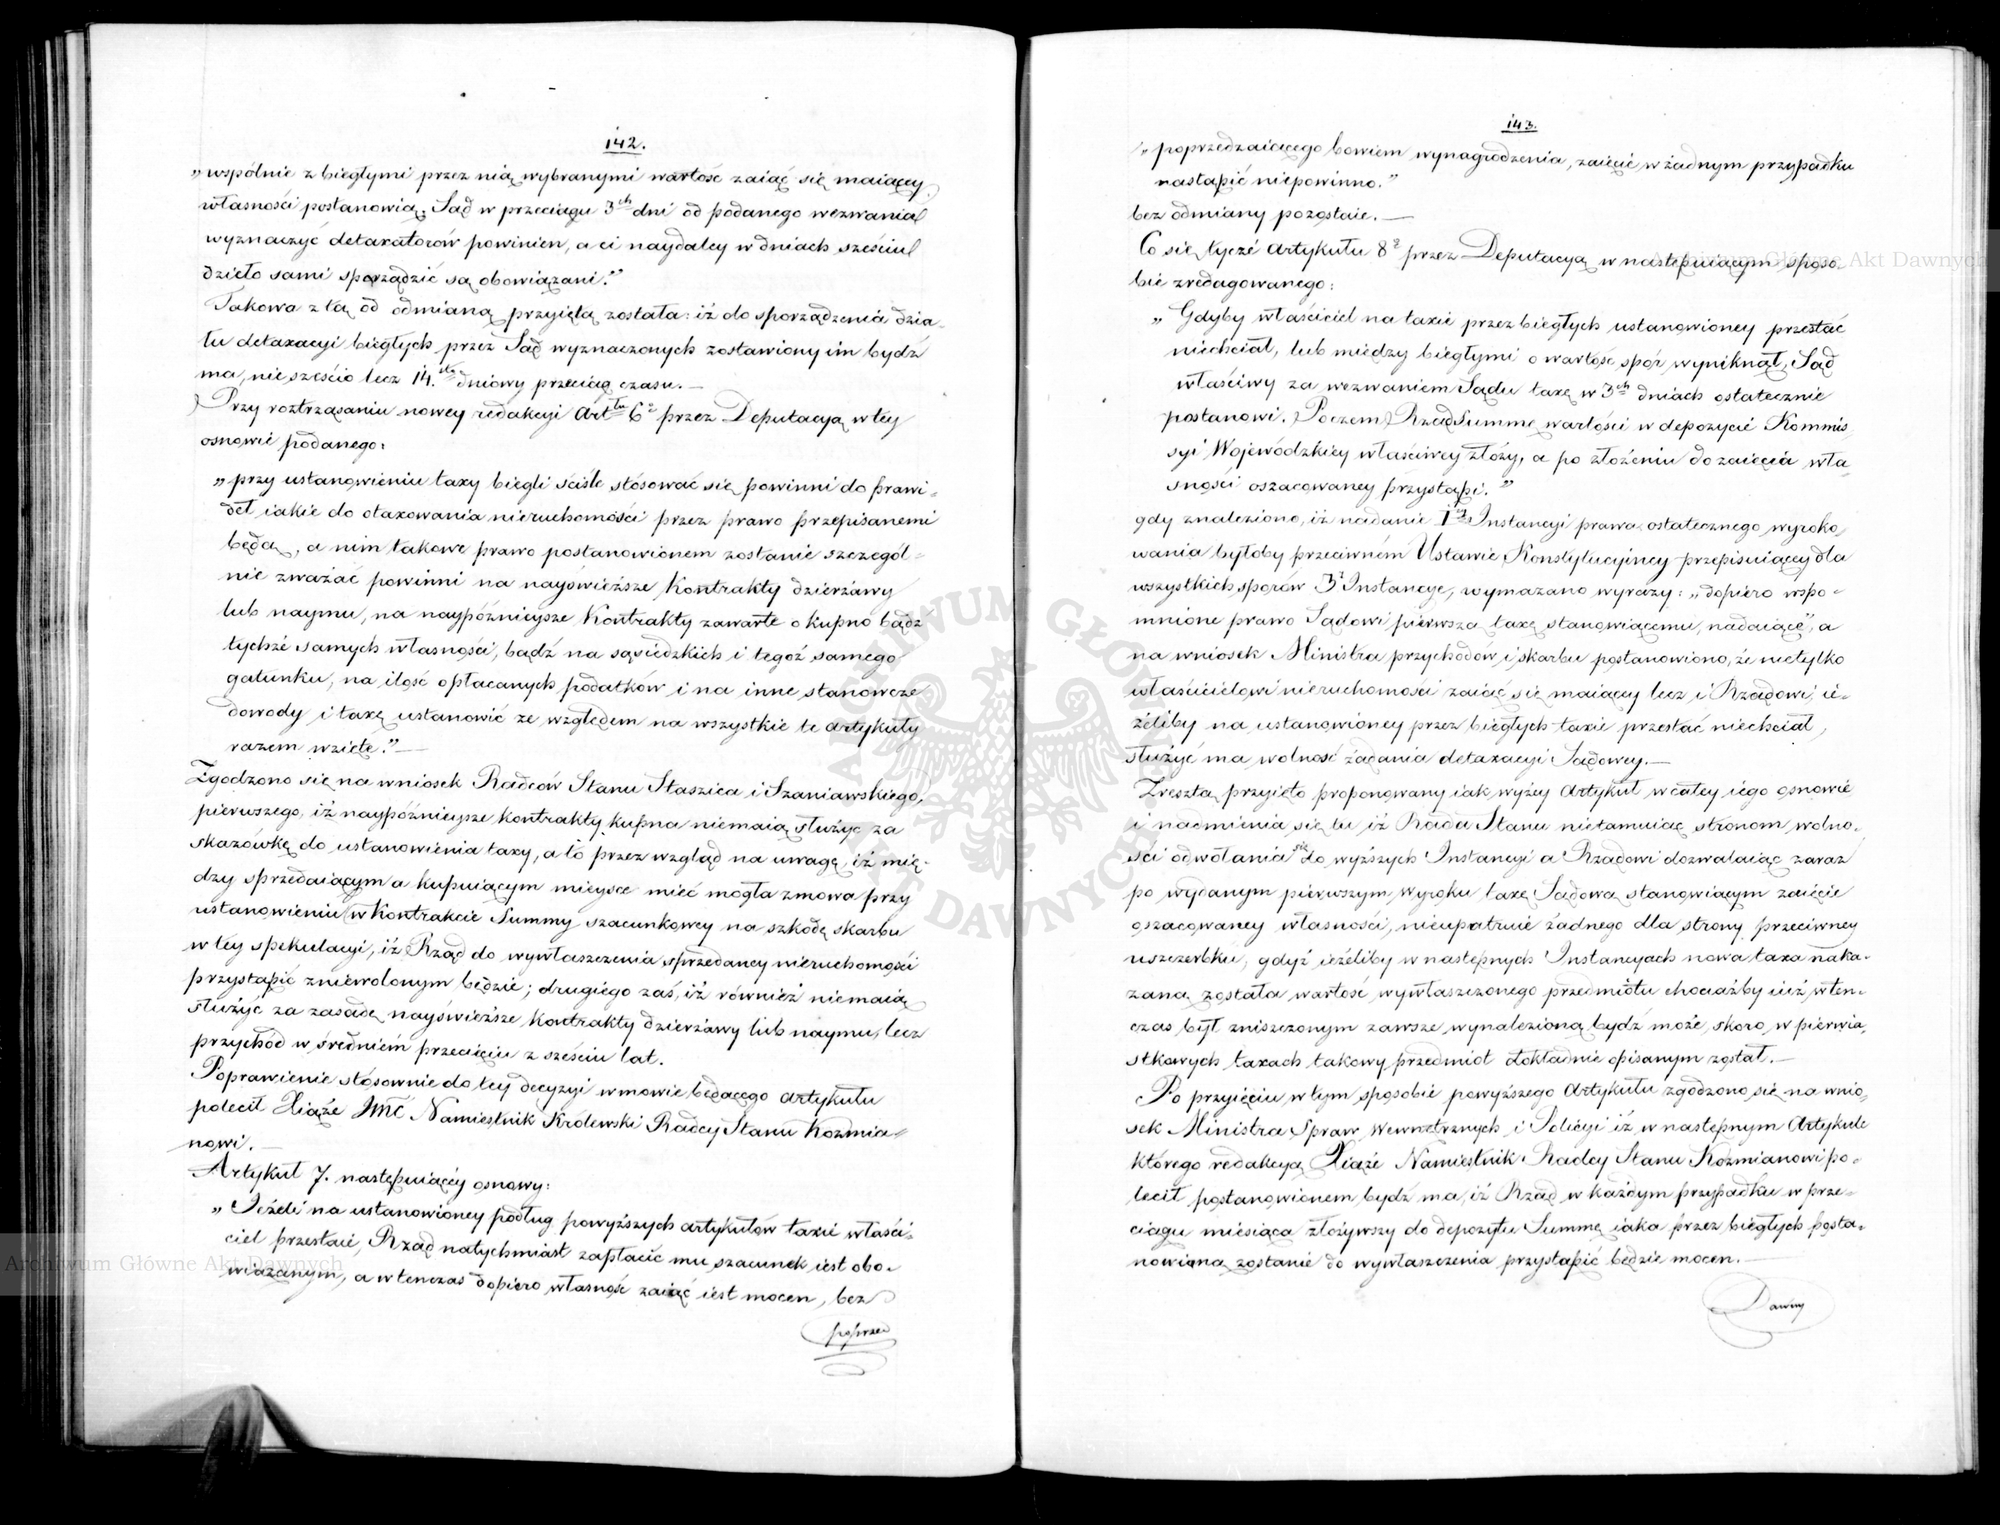 142.
„wspólnie z biegłymi przez nią wybranymi wartość zaiąć się maiącey
własności postanowią. Sąd w przeciągu 3ch dni od podanego wezwania
wyznaczyć detaxatorów powinien, a ci naydaley w dniach sześciu
dzieło sami sporządzić są obowiązani.”
Takowa z tą od odmianą przyiętą została: iż do sporządzenia dzia-
łu detaxacyi biegłych przez Sąd wyznaczonych zostawiony im bydź
ma, nie sześcio lecz 14.sto dniowy przeciąg czasu. —
Przy roztrząsaniu nowey redakcyi Arttu 6º przez Deputacyą w tey
osnowie podanego:
„przy ustanowieniu taxy biegli ściśle stósować się powinni do prawi-
deł iakie do otaxowania nieruchomości przez prawo przepisanemi
będą, a nim takowe prawo postanowionem zostanie szczegól-
nie zważać powinni na nayświeższe Kontrakty dzierżawy
lub naymu, na naypóźnieysze Kontrakty zawarte o kupno bądź
tychże samych własności, bądź na sąsiedzkich i tegoż samego
gatunku, na ilość opłacanych podatków i na inne stanowcze
dowody i taxę ustanowić ze względem na wszystkie te artykuły
razem wzięte.” —
Zgodzono się na wniosek Radców Stanu Staszica i Szaniawskiego,
pierwszego, iż naypóźnieysze kontrakty kupna niemaią służyć za
skazówkę do ustanowienia taxy, a to przez wzgląd na uwagę, iż mię-
dzy sprzedaiącym a kupuiącym mieysce mieć mogła zmowa przy
ustanowieniu w Kontrakcie Summy szacunkowey na szkodę skarbu
w tey spekulacyi, iż Rząd do wywłaszczenia sprzedaney nieruchomości
przystąpić zniewolonym będzie; drugiego zaś, iż również niemaią
służyć za zasadę nayświeższe kontrakty dzierżawy lub naymu, lecz
przychód w średniém przecięciu z sześciu lat.
Poprawienie stósownie do tey decyzyi w mowie będącego artykułu
polecił Xiąże JMć Namiestnik Królewski Radcy Stanu Koźmia-
nowi. —
Artykuł 7. następuiącéy osnowy:
„Ieżeli na ustanowioney podług powyższych artykułów taxie właści-
ciel przestaie, Rząd natychmiast zapłacić mu szacunek iest obo-
wiązanym, a wtenczas dopiero własność zaiąć iest mocen, bez
poprzed
143.
„poprzedzaiącego bowiem wynagrodzenia, zaięcie w żadnym przypadku
nastąpić niepowinno.”
bez odmiany pozostaie. —
Co się tycze artykułu 8º przez Deputacyą w następuiącym sposo-
bie zredagowanego:
„Gdyby właściciel na taxie przez biegłych ustanowioney przestać
niechciał, lub między biegłymi o wartość spór wyniknął, Sąd
właściwy za wezwaniem Sądu taxę w 3ch dniach ostatecznie
postanowi. Poczem Rząd Summę wartości w depozycie Kommis-
syi Wojewódzkiey właściwey złoży, a po złożeniu do zaięcia wła-
sności oszacowaney przystąpi.”
gdy znaleziono, iż nadanie 1éy Instancyi prawa ostatecznego wyroko-
wania byłoby przeciwném Ustawie Konstytucyjney przepisuiącéy dla
wszystkich sporów 3y Instancye, wymazano wyrazy: „dopiero wspo-
mnione prawo Sądowi pierwszą taxę stanowiącemu, nadaiące”, a
na wniosek Ministra przychodów i skarbu postanowiono, że nietylko
właścicielowi nieruchomości zaiąć się maiącey lecz i Rządowi, ie-
żeliby na ustanowioney przez biegłych taxie przestać niechciał,
służyć ma wolność żądania detaxacyi Sądowey. —
Zresztą przyięto proponowany iak wyżey artykuł w całey iego osnowie
i nadmienia się tu iż Rada Stanu nietamuiąc stronom wolno-
ści odwołania się do wyższych Instancyi a Rządowi dozwalaiąc zaraz
po wydanym pierwszym wyroku taxę Sądową stanowiącym zaięcie
oszacowaney własności, nieupatruie żadnego dla strony przeciwney
uszczerbku, gdyż ieżeliby w następnych Instancyach nowa taxa naka-
zaną została wartość wywłaszczonego przedmiotu chociażby iuż wten-
czas był zniszczonym zawsze wynalezioną bydź może, skoro w pierwia-
stkowych taxach takowy przedmiot dokładnie opisanym został. —
Po przyięciu w tym sposobie powyższego artykułu zgodzono się na wnio-
sek Ministra Spraw Wewnętrznych i Policyi iż w następnym Artykule
którego redakcyą Xiąże Namiestnik Radcy Stanu Koźmianowi po-
lecił postanowionem bydź ma, iż Rząd w każdym przypadku w prze-
ciągu miesiąca złożywszy do depozytu Summę iaka przez biegłych posta-
nowioną zostanie do wywłaszczenia przystąpić będzie mocen. —
Dawny
Archiwum Główne Akt Dawnych
Archiwum Główne Akt Dawnych
ARCHIWUM GŁÓWNE AKT DAWNYCH